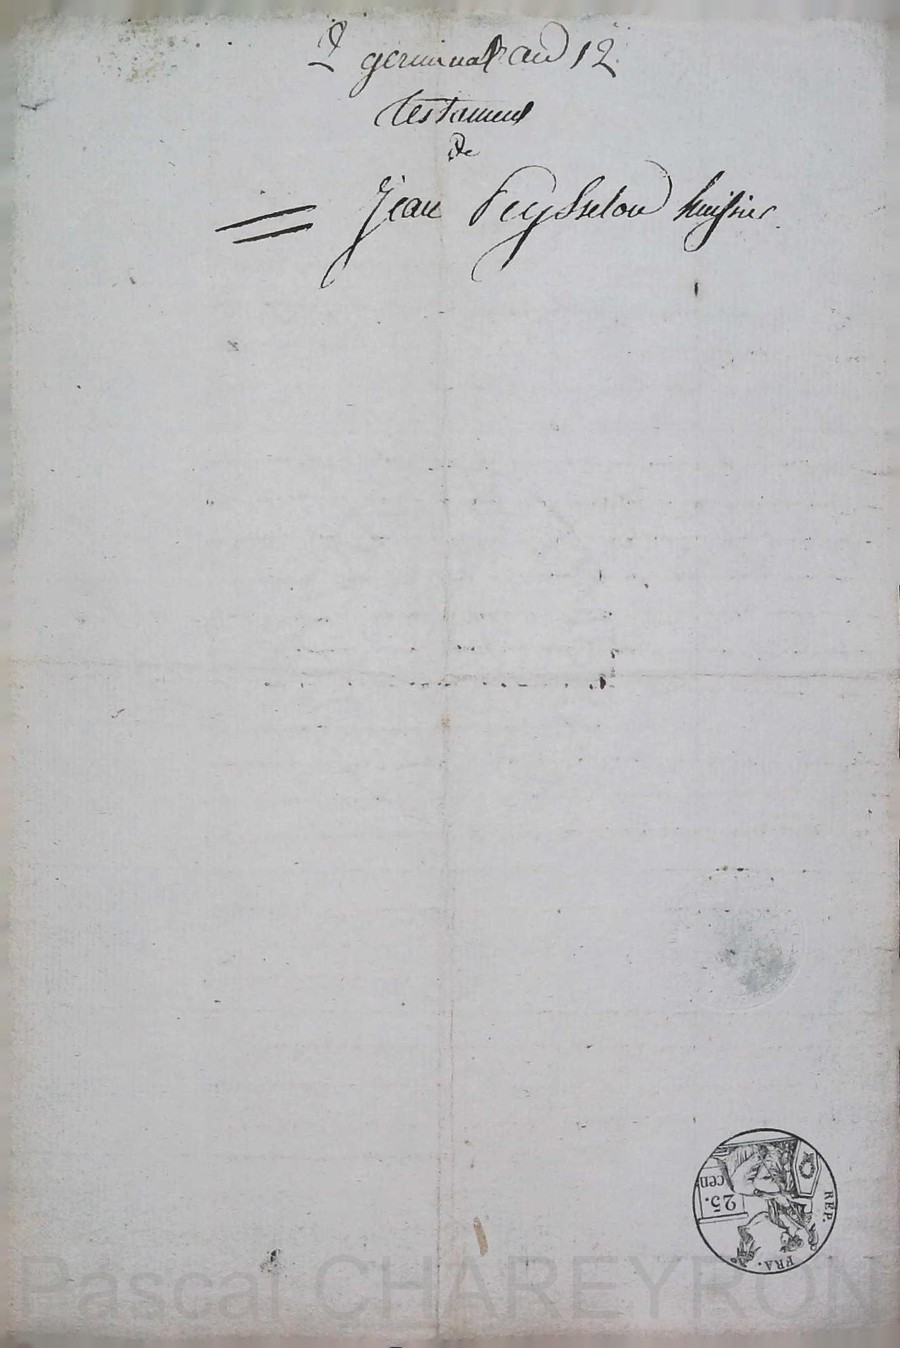 2 germinal an 12
testament
De
Jean Peysselon huissier
REP. FRA.
25.
cen
Pascal CHAREYRON